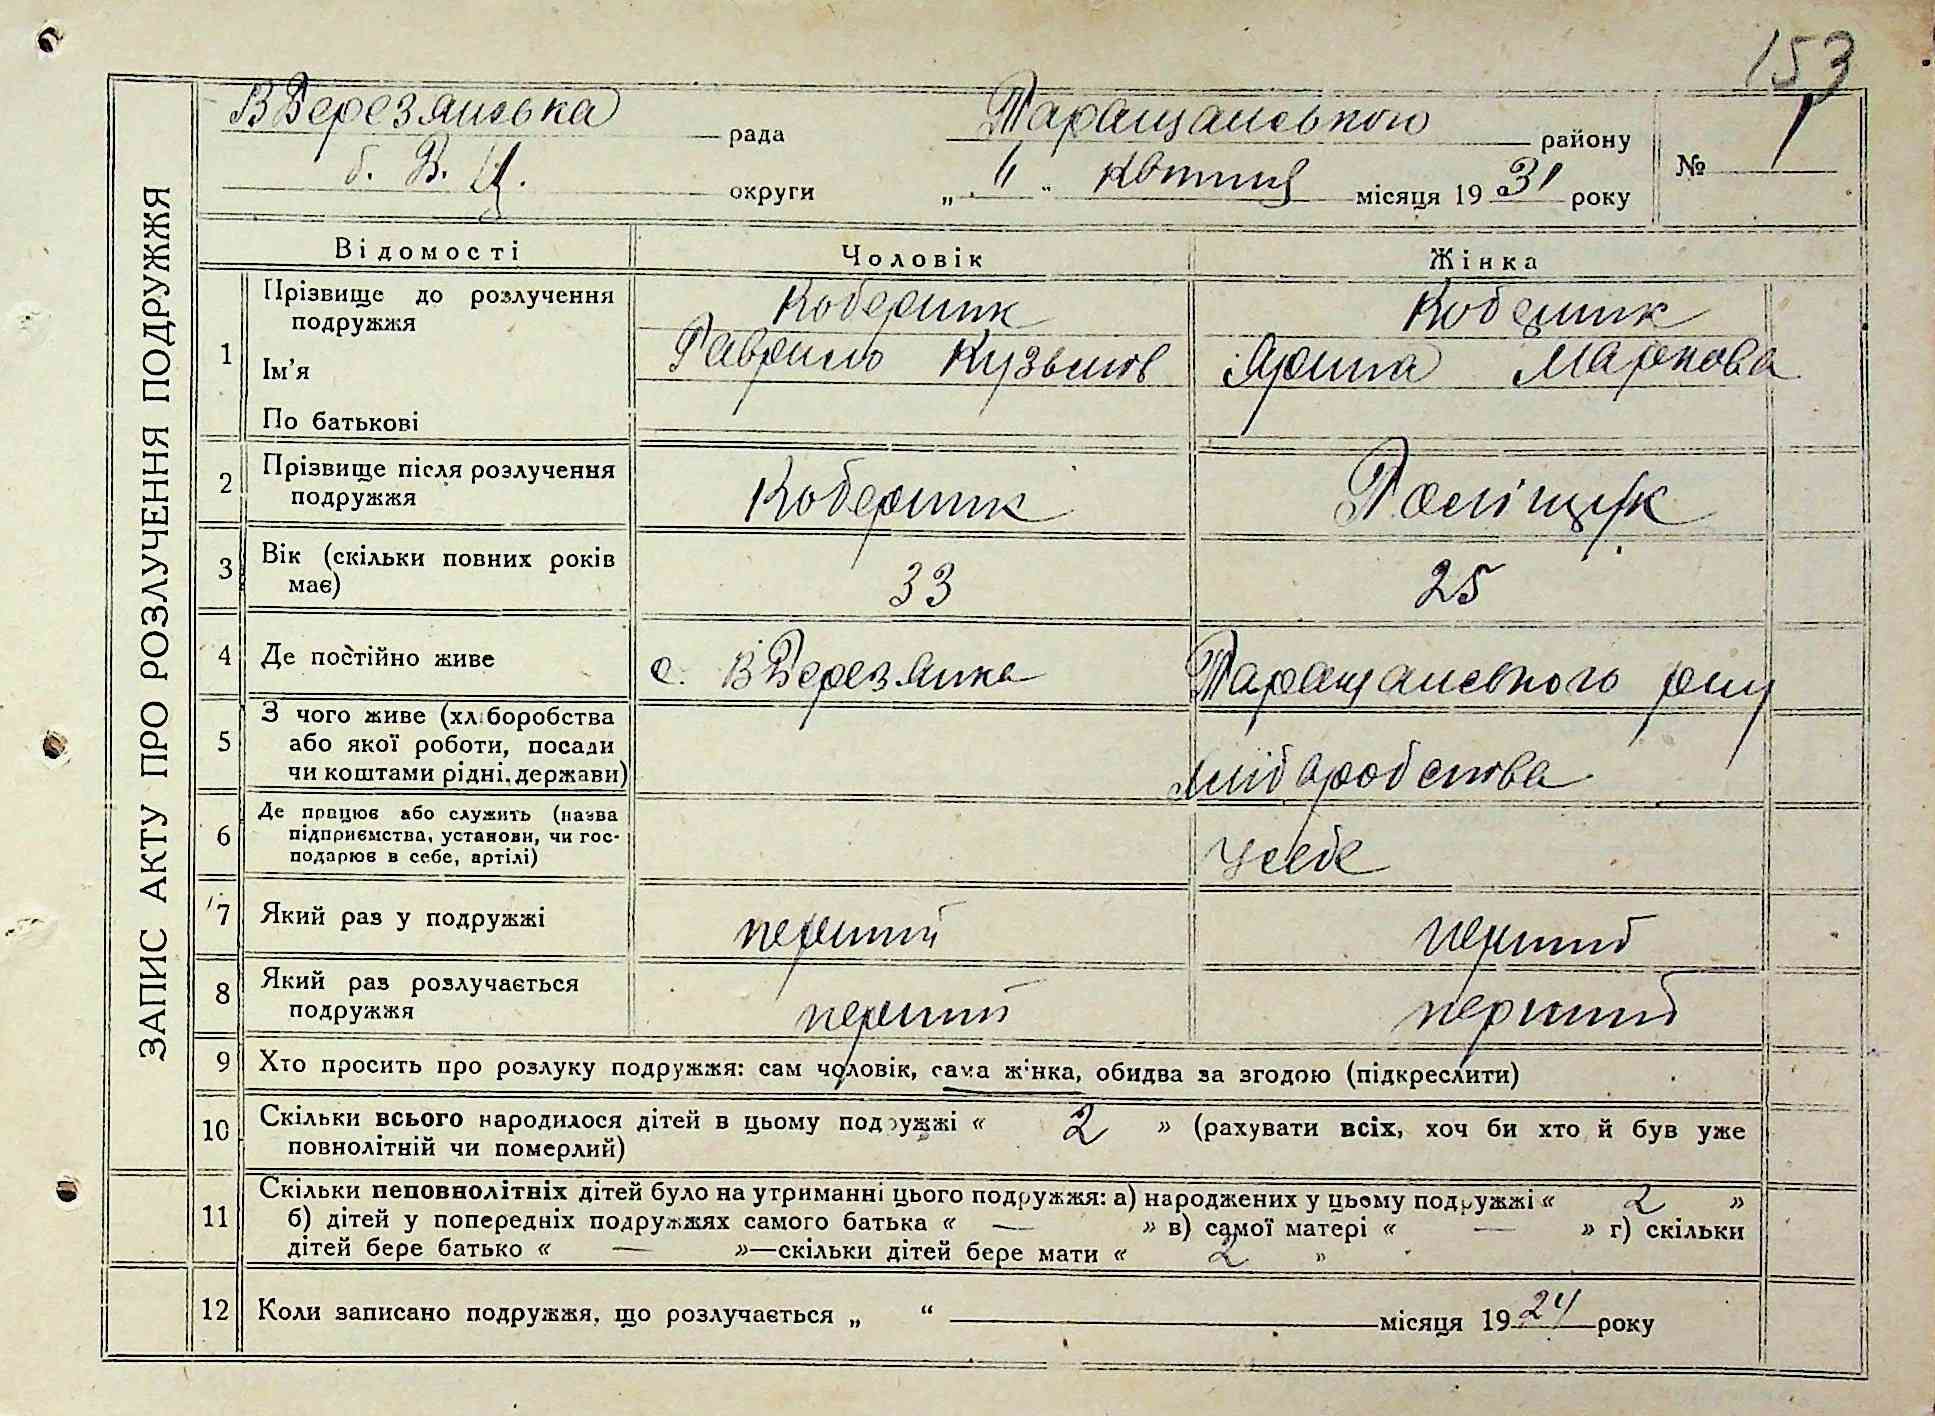 153
ЗАПИС АКТУ ПРО РОЗЛУЧЕННЯ ПОДРУЖЖЯ
ВБерезянська рада Таращанського району № 1
б. В. Ц. округи „ 11 “ квітня місяця 1931 року
Відомості Чоловік Жінка
1 Прізвище до розлучення подружжя Коберник Коберник
Ім'я Гаврило Кузьмов Ярина Маркова
По батькові
2 Прізвище після розлучення
подружжя Коберник Поліщук
3 Вік (скільки повних років
має) 33 25
4 Де постійно живе с. ВБерезянка Таращанського р-ну
5 З чого живе (хліборобства
або якої роботи, посади
чи коштами рідні, держави) хліборобства
6 Де працює або служить (назва
підприємства, установи, чи гос-
подарює в себе, артілі) У себе
7 Який раз у подружжі перший перший
8 Який раз розлучається
подружжя перший перший
9 Хто просить про розлуку подружжя: сам чоловік, сама жінка, обидва за згодою (підкреслити)
10 Скільки всього народилося дітей в цьому подружжі « 2 » (рахувати всіх, хоч би хто й був уже
повнолітній чи померлий)
11 Скільки неповнолітніх дітей було на утриманні цього подружжя: а) народжених у цьому подружжі « 2 »
б) дітей у попередніх подружжях самого батька « — » в) самої матері « — » г) скільки
дітей бере батько « — »—скільки дітей бере мати « 2 »
12 Коли записано подружжя, що розлучається „ “ місяця 1924 року